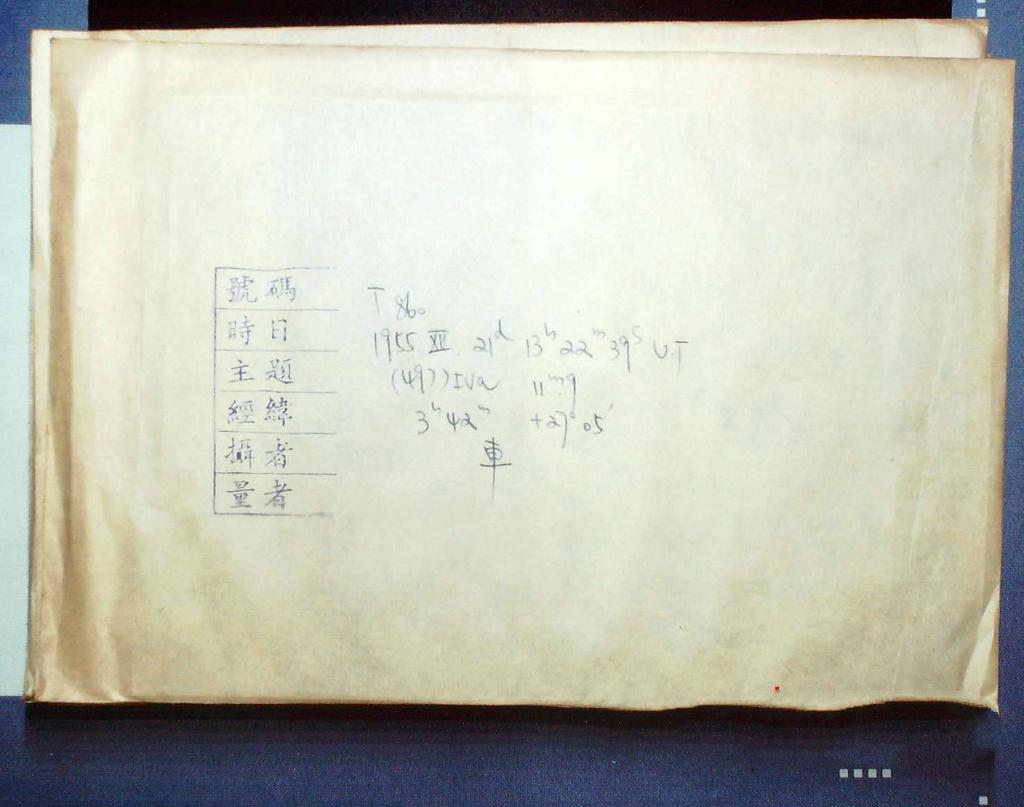 號碼 T 860
時日 1955 XII. 21d 13h 22m 39s U.T
主題 (497) Iva 11m.9
經緯 3h 42m +27° 05'
攝者 車
量者